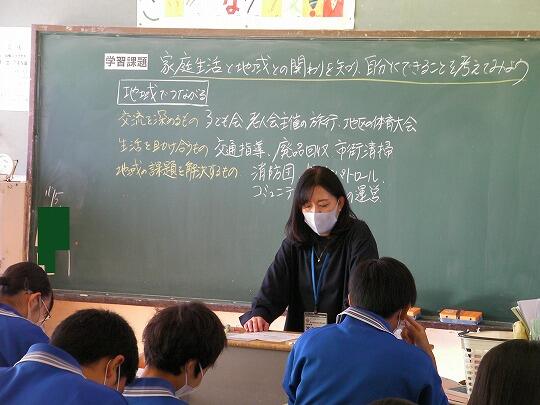 学習課題 家庭生活と地域との関わりを知り、自分にできることを考えてみよう
地域でつながる
交流を深めるもの 子ども会 老人会主催の旅行、地区の体育大会
生活を助け合うもの 交通指導、廃品回収 市街清掃
地域の課題を解決するもの 消防団 パトロール
コミュニテ の運営
11/5